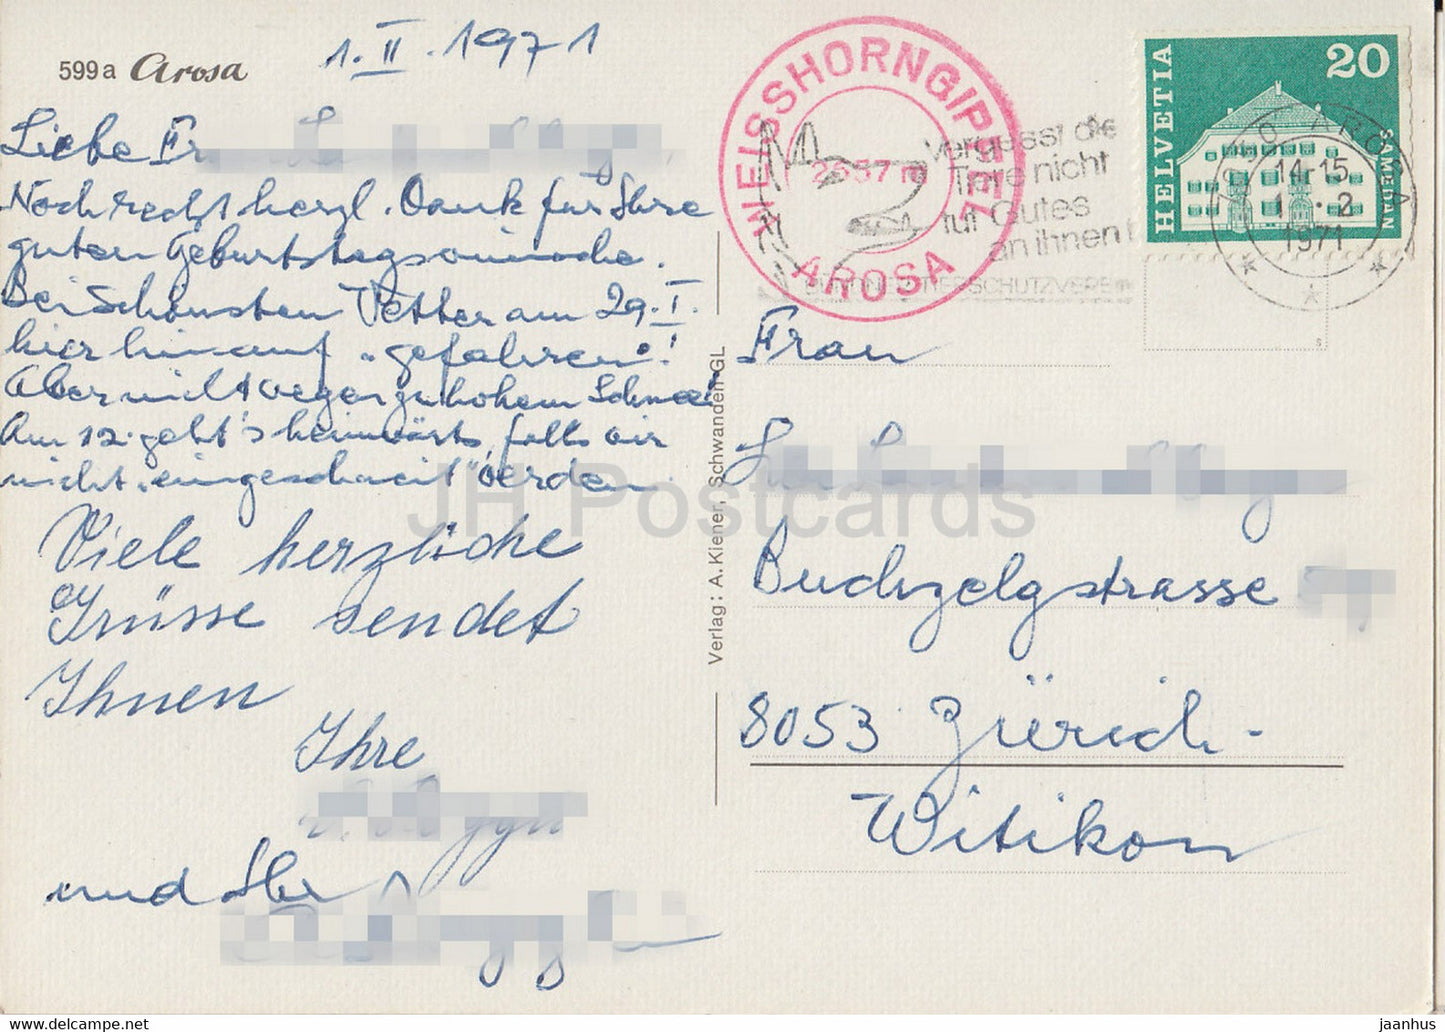 599a Arosa
1.II.1971
Liebe
Noch recht herzl. Dank für Ihre
guten Geburtstagswünsche.
Bei Schönsten Wetter am 29.I.
hier hinauf "gefahren"!
Aber nicht wegen zu hohem Schnee
Am 12. geht's heimwärts, falls wir
nicht "eingeschneit" werden.
Viele herzliche
Grüsse sendet
Ihnen
Ihre
und Ihr
Verlag: A. Kiener, Schwanden GL
WEISSHORNGIPFEL
AROSA
Vergesst die
Tiere nicht
tut Gutes
an ihnen!
TIERSCHUTZVEREIN
HELVETIA
20
SAMEDAN
AROSA
14-15
1.-2
1971
s
Frau
Buchzelgstrasse
8053 Zürich-
Witikon
JH Postcards
jaanhus — delcampe.net